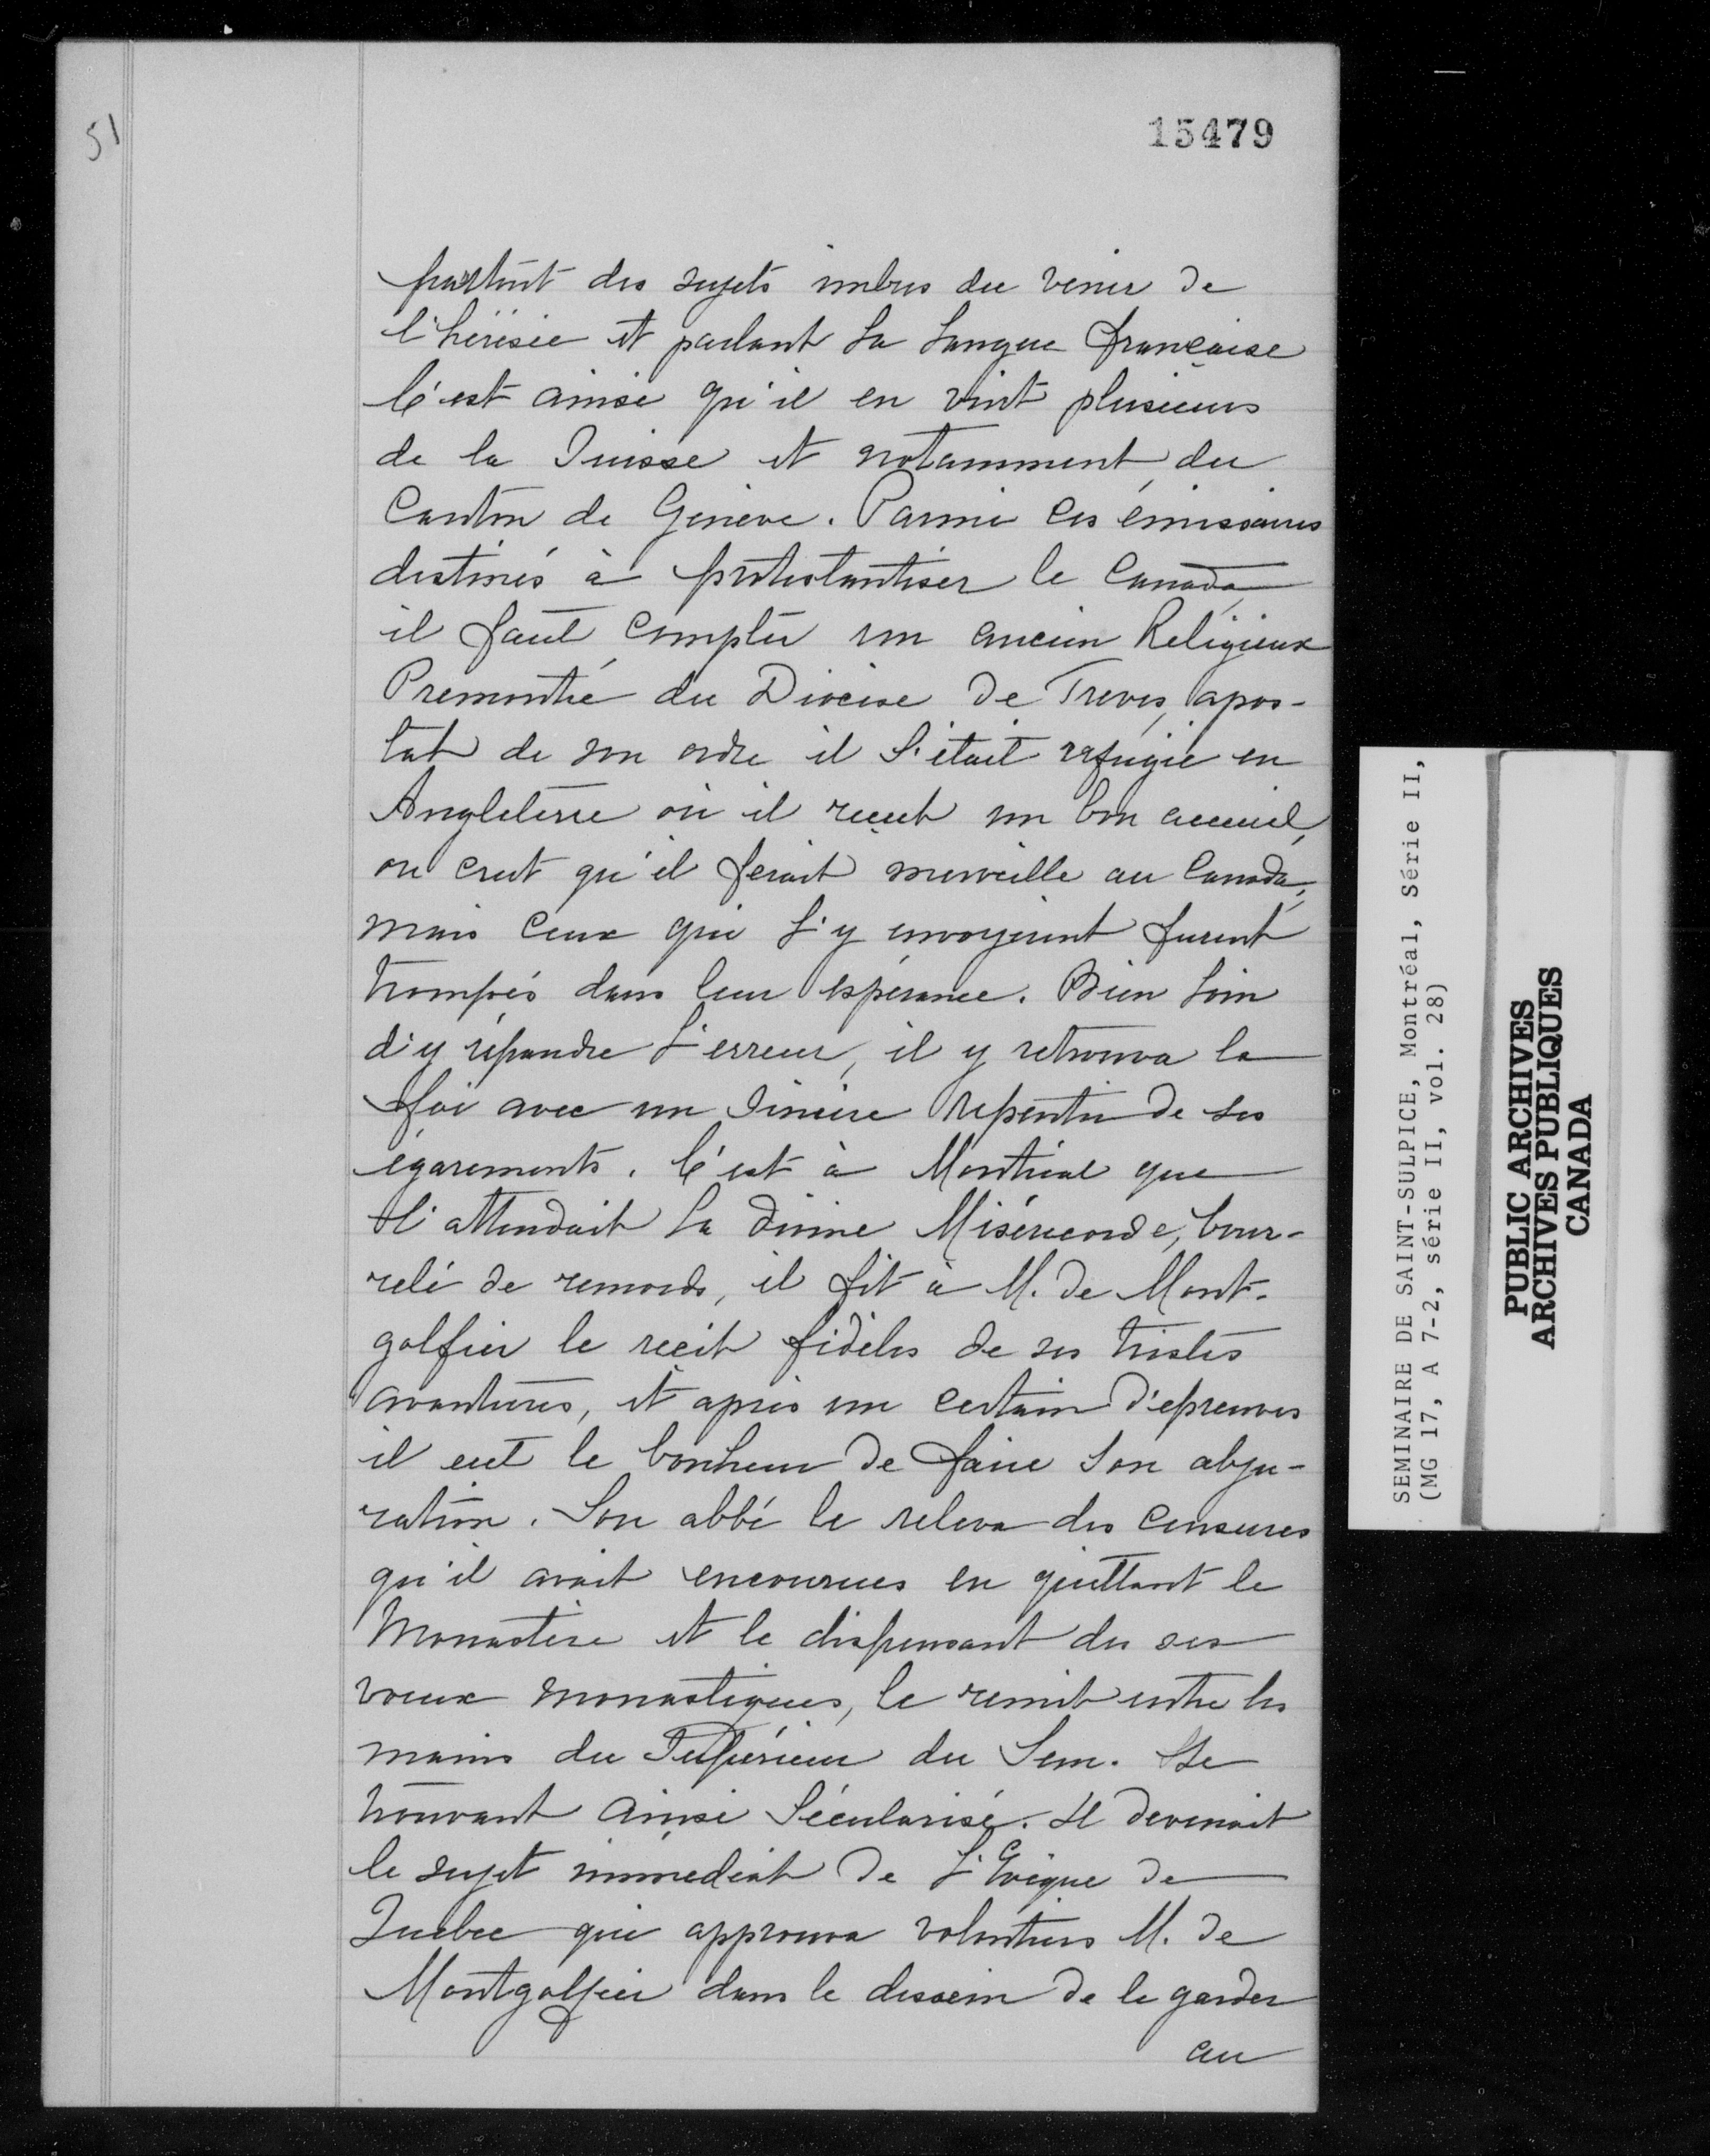 51
15479
partout des sujets imbus du venin de
l'hérésie et parlant la langue française
C'est ainsi qu'il en vint plusieurs
de la Suisse et notamment du
Canton de Genève. Parmi ces émissaires
destinés à protestantiser le Canada,
il faut compter un ancien Religieux
Premontré du Diocèse de Treves, apos-
tat de son ordre il s'était refugié en
Angleterre où il reçut un bon accueil,
on crut qu'il ferait merveille au Canada,
mais ceux qui l'y envoyèrent furent
trompés dans leur espérance. Bien loin
d'y répandre l'erreur, il y retrouva la
foi avec un sincère repentir de ses
égarements. C'est à Montréal que
l'attendait la divine Miséricorde, bour-
relé de remords, il fit à M. de Mont-
golfier le récit fidèles de ses tristes
avantures, et après un certain d'épreuves
il eut le bonheur de faire son abju-
ration. Son abbé le releva des censures
qu'il avait encourues en quittant le
Monastère et le dispensant du ses
voeux monastiques, le remit entre les
mains du Supérieur du Sem. Se
trouvant ainsi sécularisé. Il devenait
le sujet immediat de l'Evêque de
Quebec qui approuva volontiers M. de
Montgolfier dans le dessein de le garder
au
SEMINAIRE DE SAINT-SULPICE, Montréal, Série II,
(MG 17, A 7-2, série II, vol. 28)
PUBLIC ARCHIVES
ARCHIVES PUBLIQUES
CANADA